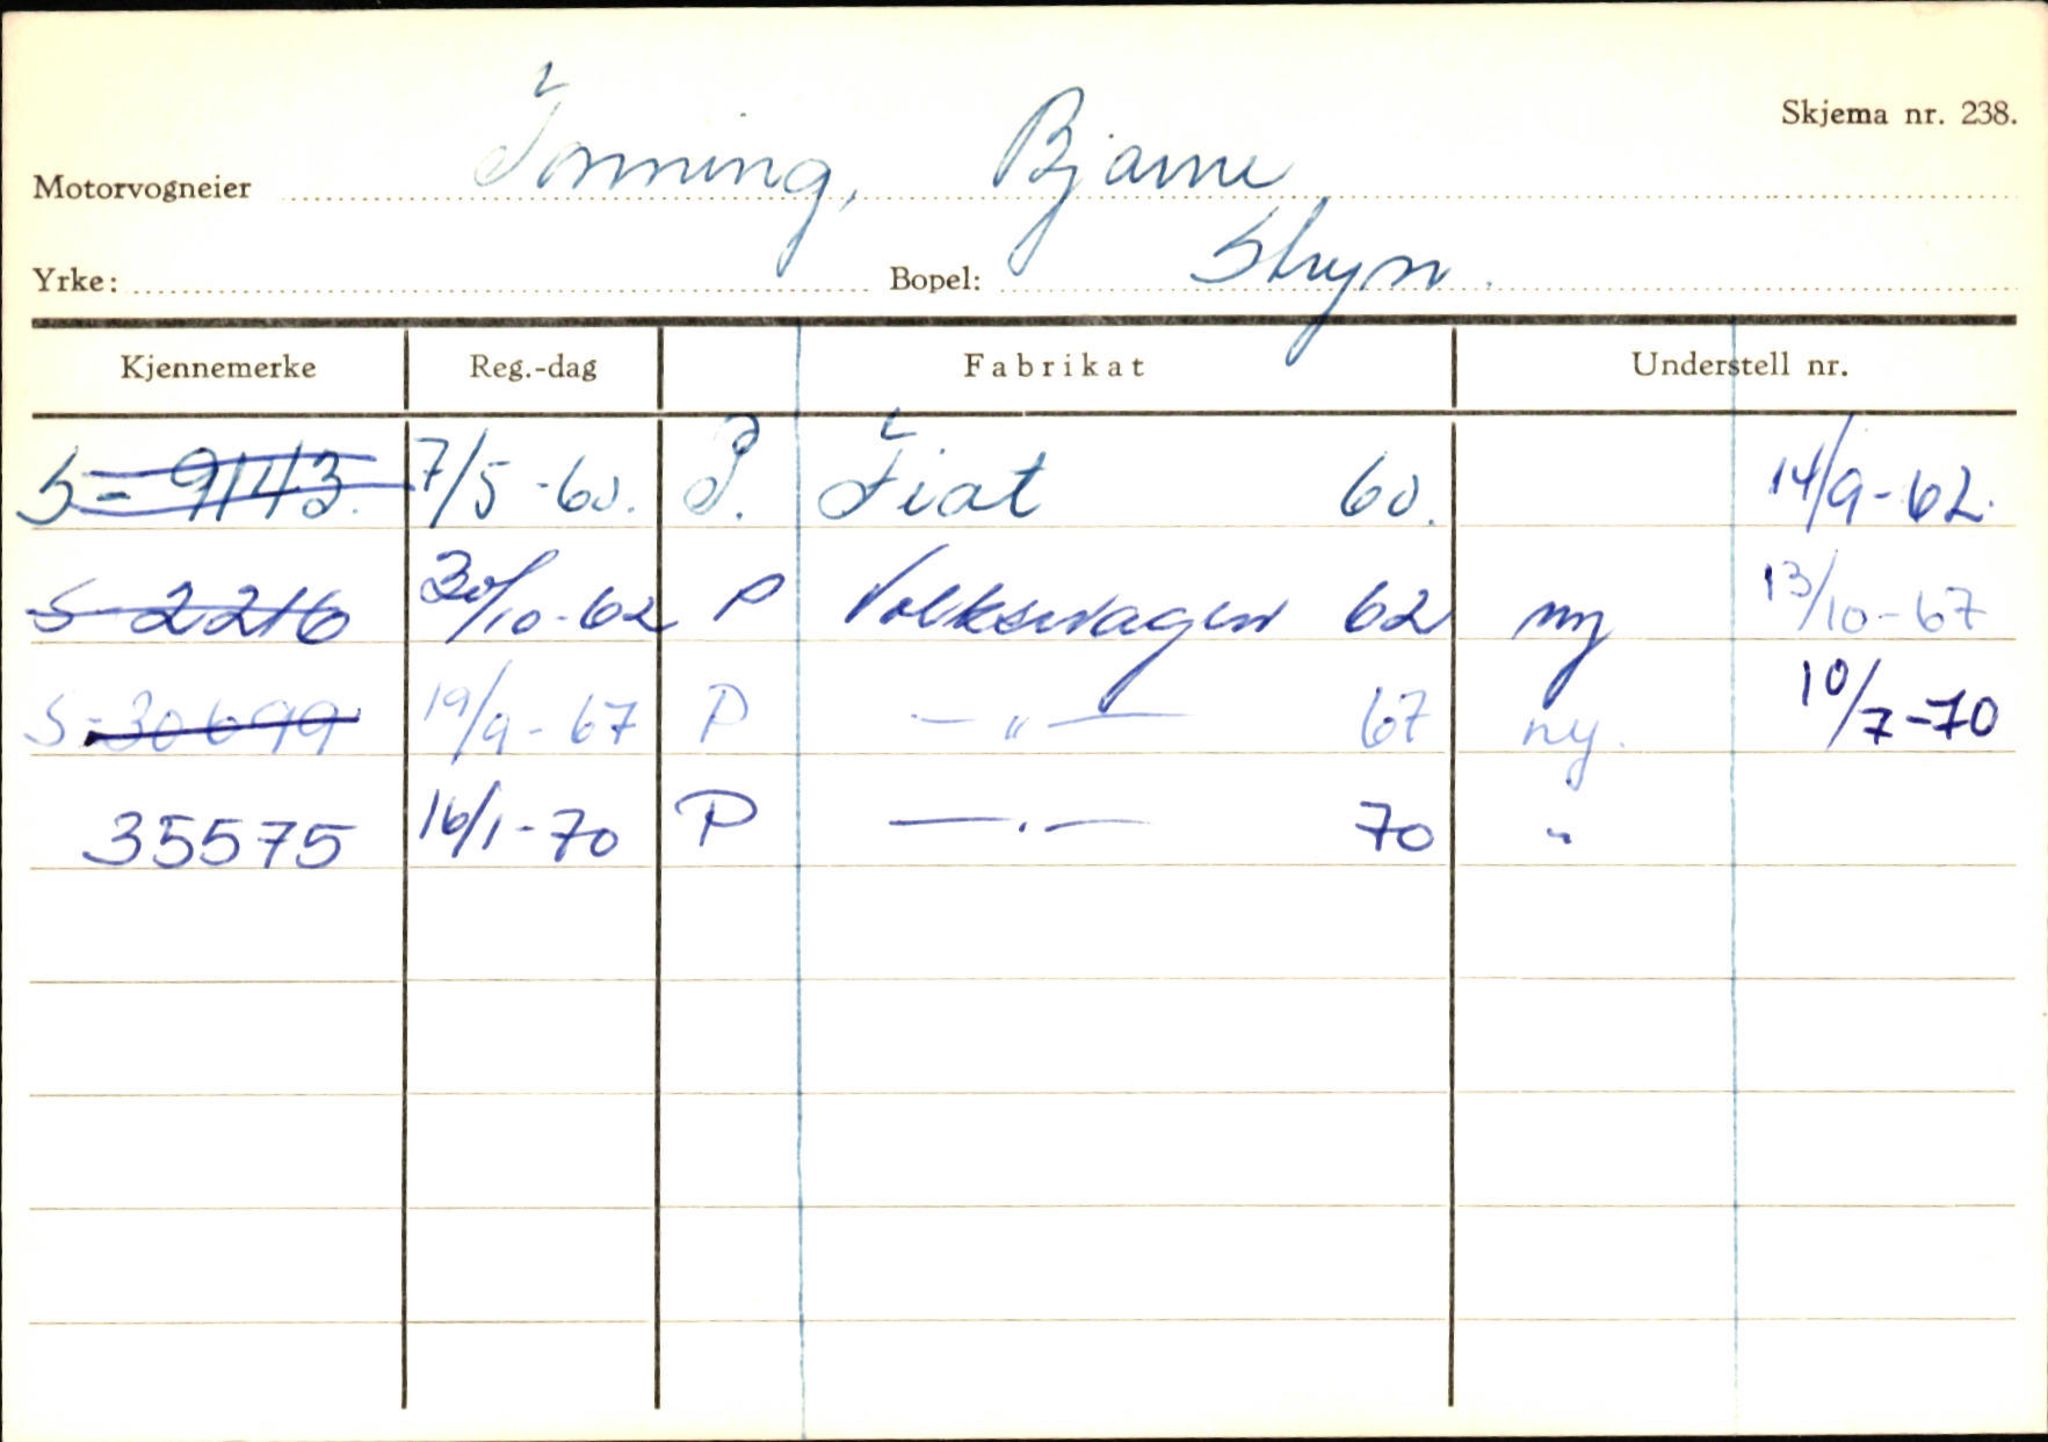 Skjema nr. 238.
Motorvogneier Tonning, Bjarne
Yrke: Bopel: Stryn.
Kjennemerke Reg.-dag Fabrikat Understell nr.
S-9143. 7/5-60. P. Fiat 60. 14/9-62.
S-2216 30/10-62 P Volkswagen 62 ny 13/10-67
S-30699 19/9-67 P —"— 67 ny. 10/7-70
35575 16/1-70 P —.— 70 "